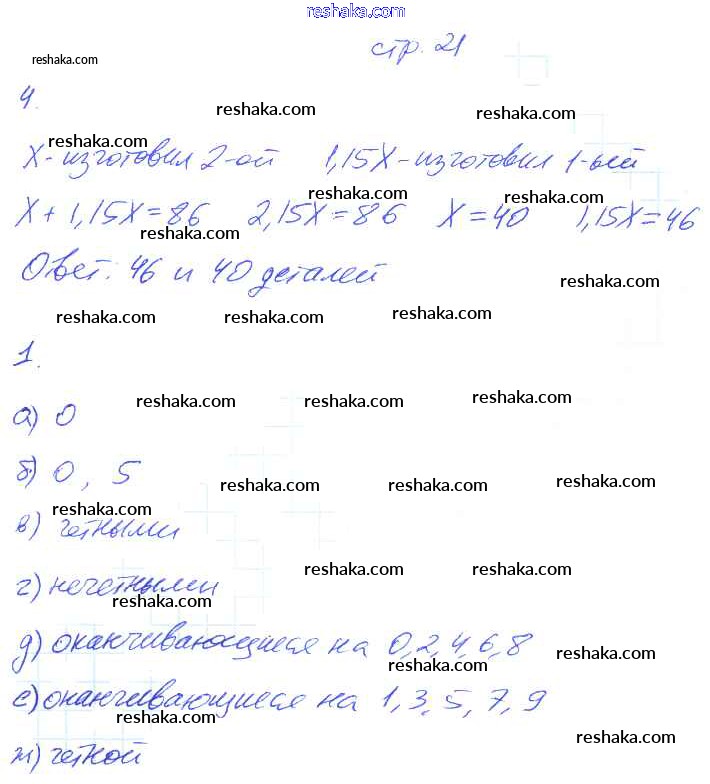 reshaka.com
стр. 21
reshaka.com
4.
reshaka.com reshaka.com
reshaka.com
X-изготовил 2-ой 1,15X-изготовил 1-ый
reshaka.com reshaka.com
X+1,15X=86 2,15X=86 X=40 1,15X=46
reshaka.com
Ответ: 46 и 40 деталей
reshaka.com
reshaka.com reshaka.com reshaka.com
1.
reshaka.com reshaka.com reshaka.com
а) 0
б) 0, 5
reshaka.com reshaka.com reshaka.com
reshaka.com
в) четными
reshaka.com reshaka.com
г) нечетными
reshaka.com
д) оканчивающиеся на 0,2,4,6,8
reshaka.com reshaka.com
е) оканчивающиеся на 1,3,5,7,9
reshaka.com
reshaka.com
ж) четной